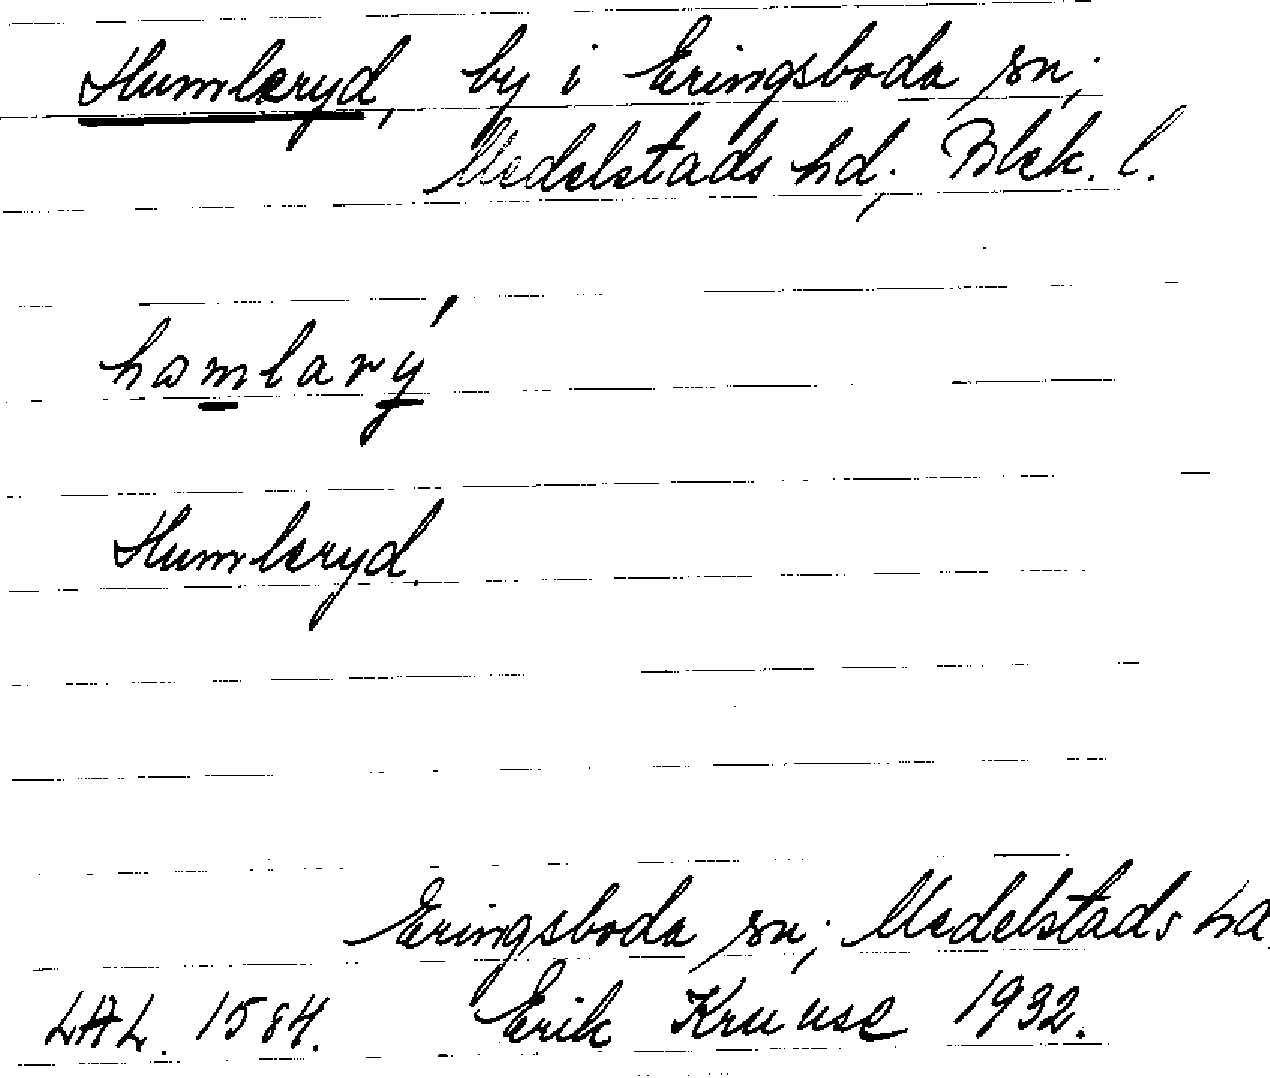 Humleryd, by i Eringsboda sn;
Medelstads hd; Blek. l.
homlarý
Humleryd.
Eringsboda sn; Medelstads hd
LAL. 1584. Erik Kruuse 1932.